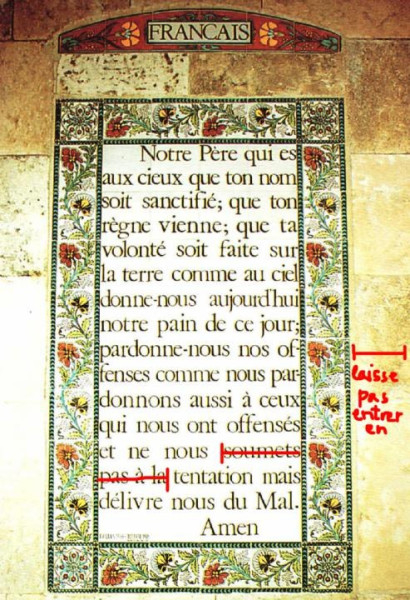 FRANÇAIS
Notre Père qui es
aux cieux que ton nom
soit sanctifié; que ton
règne vienne; que ta
volonté soit faite sur
la terre comme au ciel
donne-nous aujourd'hui
notre pain de ce jour;
pardonne-nous nos of-
fenses comme nous par-
donnons aussi à ceux
qui nous ont offensés
et ne nous soumets
pas à la tentation mais
délivre nous du Mal.
Amen
laisse
pas
entrer
en